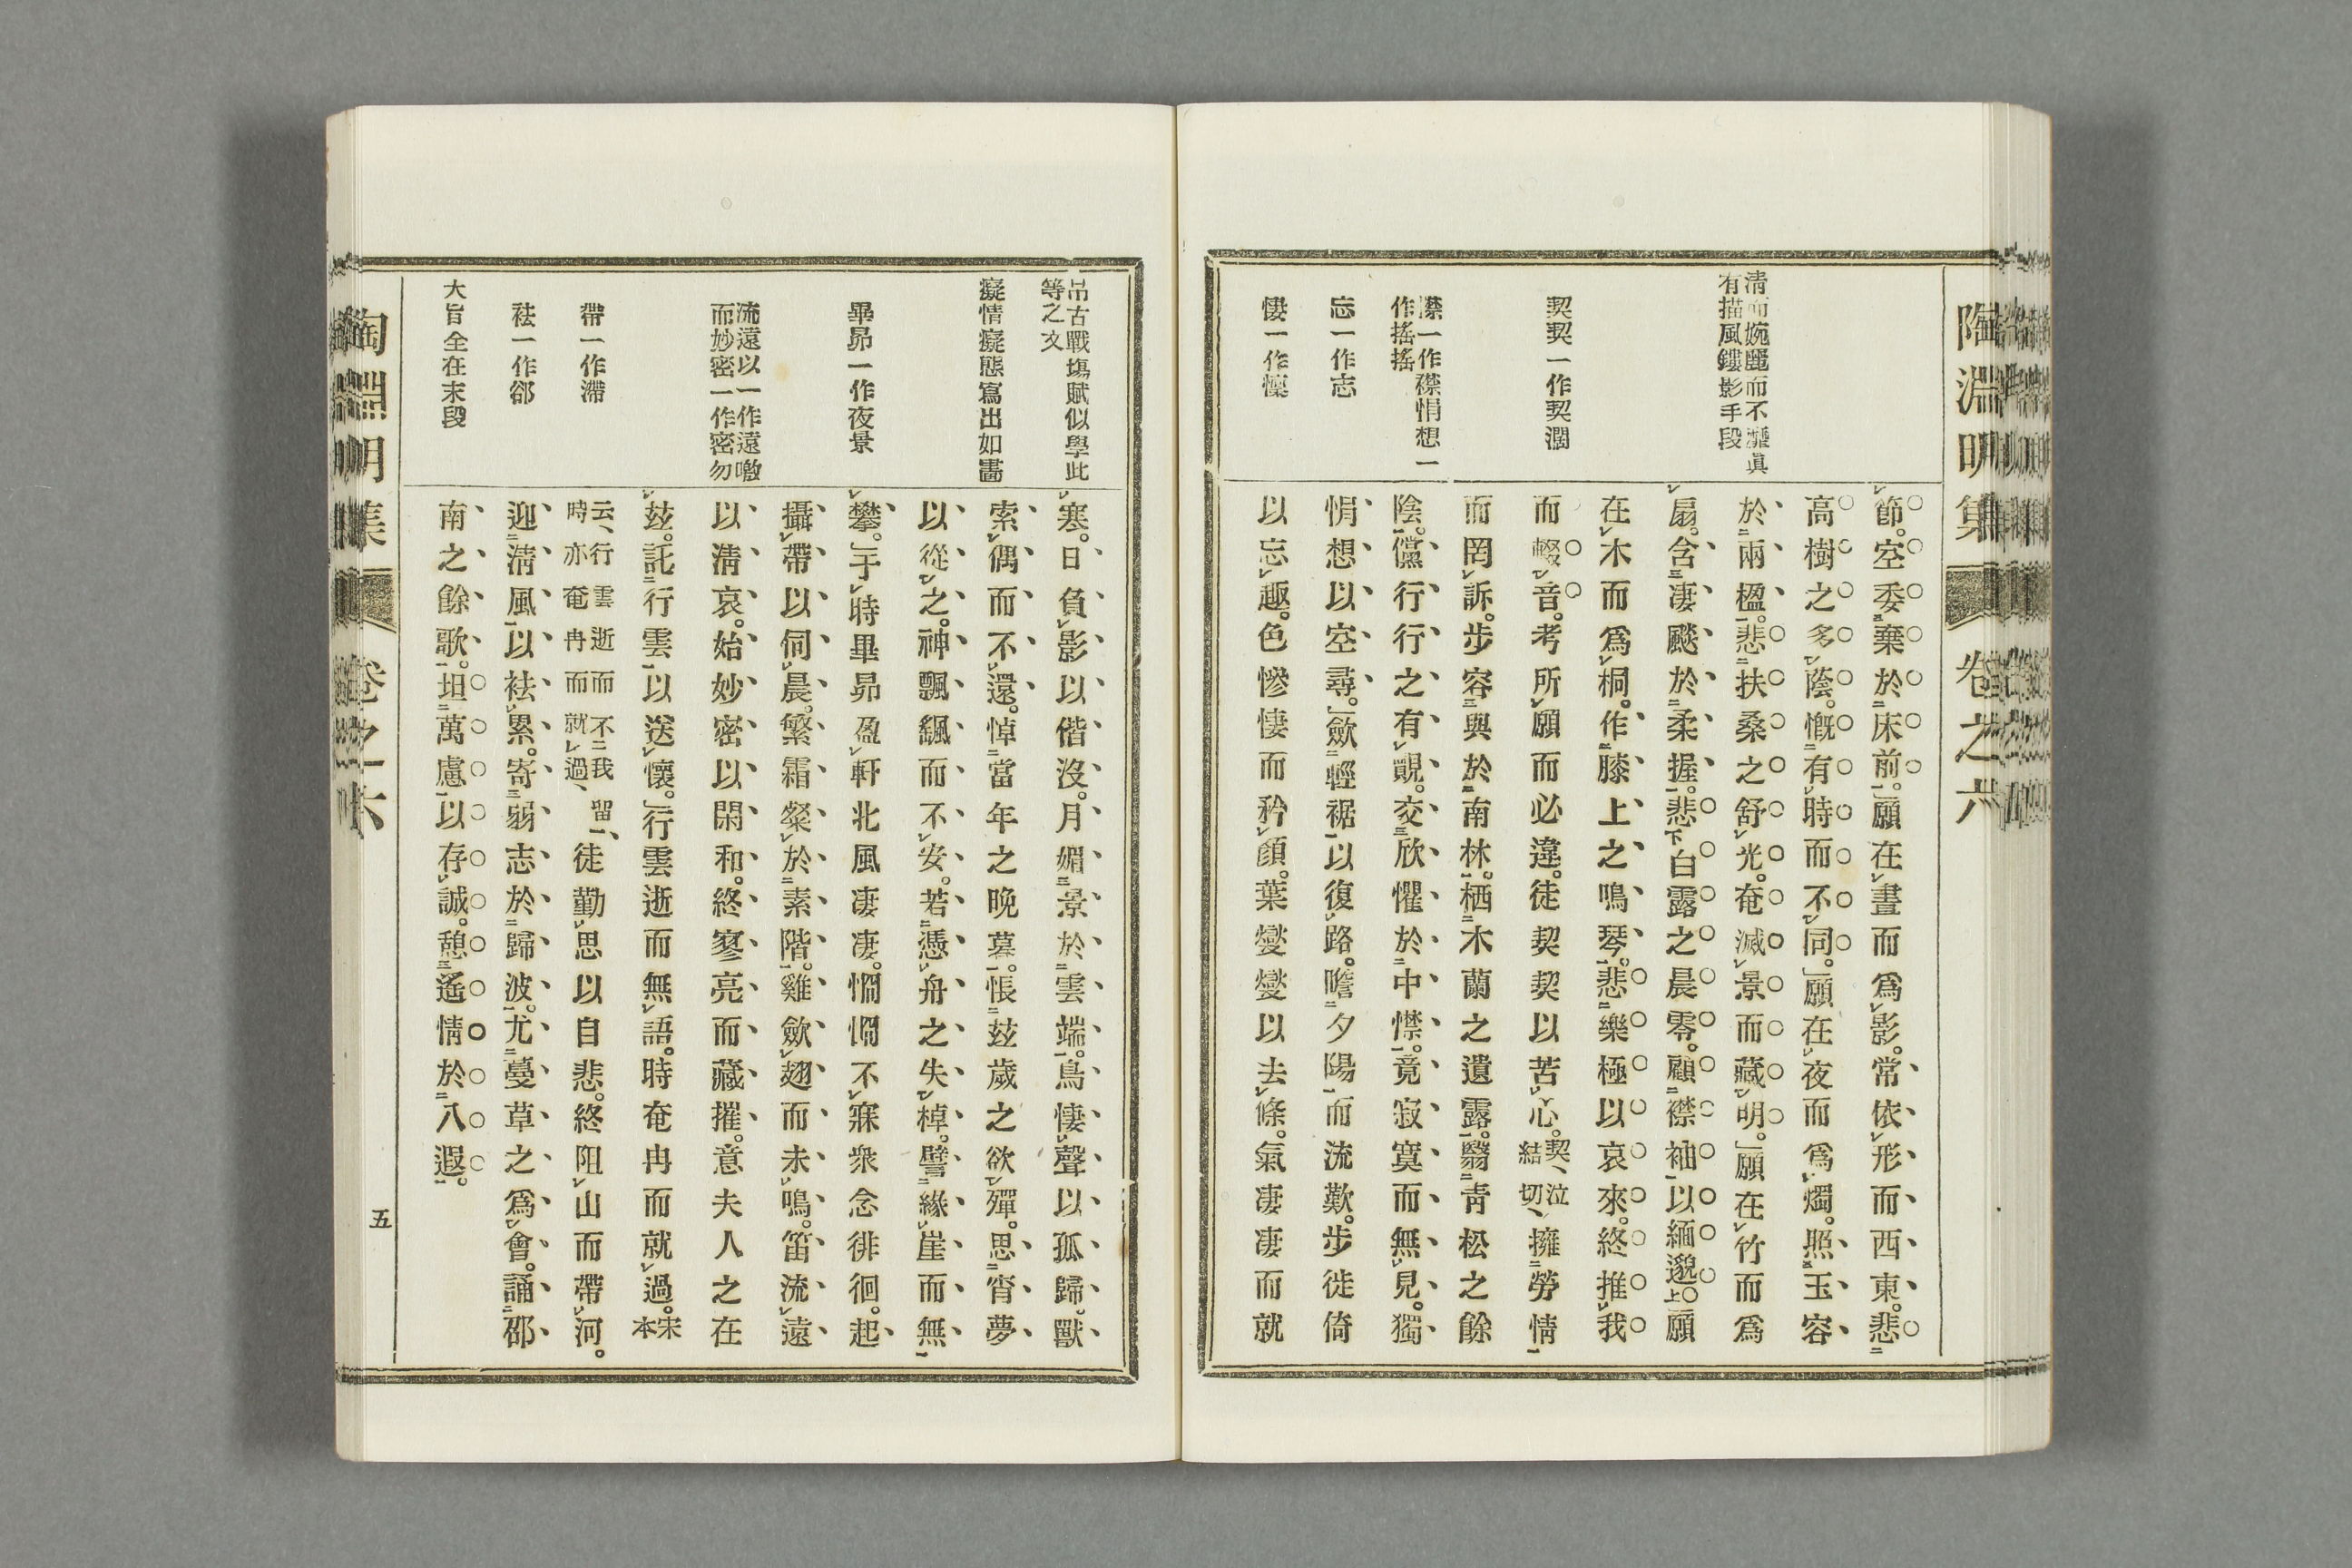 陶淵明集 卷之六
清而婉麗而不靡眞
有描風鏤影手段
契契一作契濶
襟一作襟悁想一
作搖搖
忘一作志
悽一作懍
節。空委棄於床前。願在晝而爲影。常依形而西東。悲
高樹之多蔭。慨有時而不同。願在夜而爲燭。照玉容
於兩楹。悲扶桑之舒光。奄滅景而藏明。願在竹而爲
扇。含凄飈於柔握。悲白露之晨零。顧襟袖以緬邈。願
在木而爲桐。作膝上之鳴琴。悲樂極以哀來。終推我
而輟音。考所願而必違。徒契契以苦心。契、泣結切、擁勞情
而罔訴。步容與於南林。栖木蘭之遺露。翳青松之餘
陰。儻行行之有覿。交欣懼於中襟。竟寂寞而無見。獨
悁想以空尋。歛輕裾以復路。瞻夕陽而流歎。步徙倚
以忘趣。色慘悽而矜顏。葉燮燮以去條。氣凄凄而就
弔古戰塲賦似學此
等之文
癡情癡態寫出如畵
畢昴一作夜景
流遠以一作遠噭
而妙密一作密勿
帶一作滯
袪一作郤
大旨全在末段
寒。日負影以偕沒。月媚景於雲端。鳥悽聲以孤歸。獸
索偶而不還。悼當年之晚暮。悵玆歲之欲殫。思宵夢
以從之。神飄颻而不安。若憑舟之失棹。譬緣崖而無
攀。于時畢昴盈軒北風凄凄。惘惘不寐衆念徘徊。起
攝帶以伺晨。繁霜粲於素階。雞歛翅而未鳴。笛流遠
以淸哀。始妙密以閑和。終寥亮而藏摧。意夫人之在
玆。託行雲以送懷。行雲逝而無語。時奄冉而就過。宋本
云、行雲逝而不我留、時亦奄冉而就過、徒勤思以自悲。終阻山而帶河。
迎淸風以袪累。寄弱志於歸波。尤蔓草之爲會。誦邵
南之餘歌。坦萬慮以存誠。憩遙情於八遐。
陶淵明集 卷之六 五